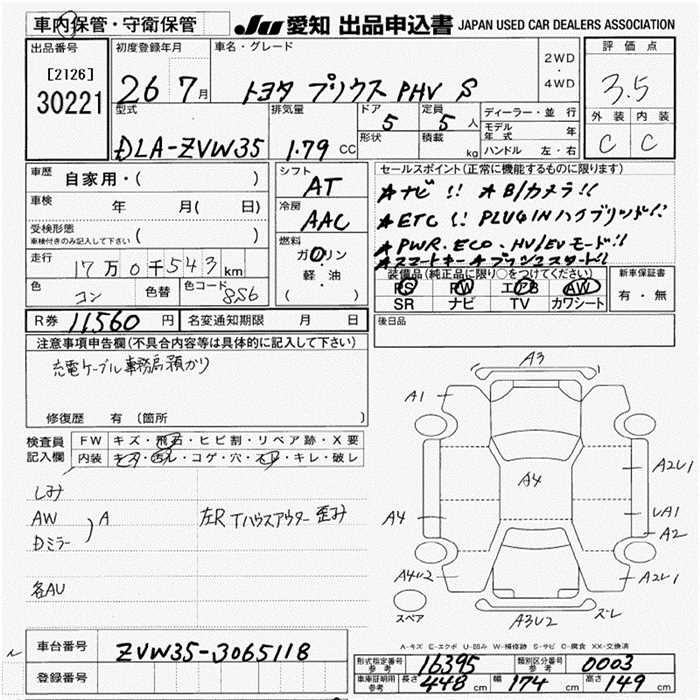 車内保管・守衛保管
JU 愛知 出品申込書 JAPAN USED CAR DEALERS ASSOCIATION
出品番号
[2126]
30221
初度登録年月
26 7月
車名・グレード
トヨタ プリウス PHV S
2WD
・
4WD
評価点
3.5
外装 内装
C C
型式
DLA-ZVW35
排気量
1.79 CC
ドア
5
定員
5 人
形状
積載
kg
ディーラー・並 行
モデル年式 年
ハンドル 左・右
車歴
自家用・( )
車検
年 月( 日)
受検形態
車検付きのみ記入して下さい ( )
走行
17万0千543km
色
コン
色替
色コード
8S6
シフト
AT
冷房
AAC
燃料
ガソリン
軽・油
( )
セールスポイント(正常に機能するものに限ります)
★ナビ!! ★B/カメラ!!
★ETC!! PLUGINハイブリッド!!
★PWR.ECO.HV/EVモード!!
★スマートキー★プッシュスタート!!
装備品(純正品に限り○をつけてください)
PS PW エアB AW
SR ナビ TV カワシート
新車保証書
有・無
R券 11,560 円
名変通知期限 月 日
後日品
注意事項申告欄(不具合内容等は具体的に記入して下さい)
充電ケーブル事務局預かり
修復歴 有 (箇所 )
検査員
記入欄
FW キズ・飛石・ヒビ割・リペア跡・X要
内装 キズ・汚レ・コゲ・穴・スレ・キレ・破レ
しみ
AW
Dミラー
A
左R Tハウスアウター歪み
各AU
A3
A1
A4
A2U1
A4
UA1
A2
A4U2
A2U1
スペア
A3U2
ズレ
A-キズ E-エクボ U-凹み W-補修跡 S-サビ C-腐食 XX-交換済
車台番号 ZVW35-3065118
登録番号
形式指定番号
参考
16395
類別区分番号
参考
0003
車庫証明用
参考
長さ 448 cm 幅 174 cm 高さ 149 cm